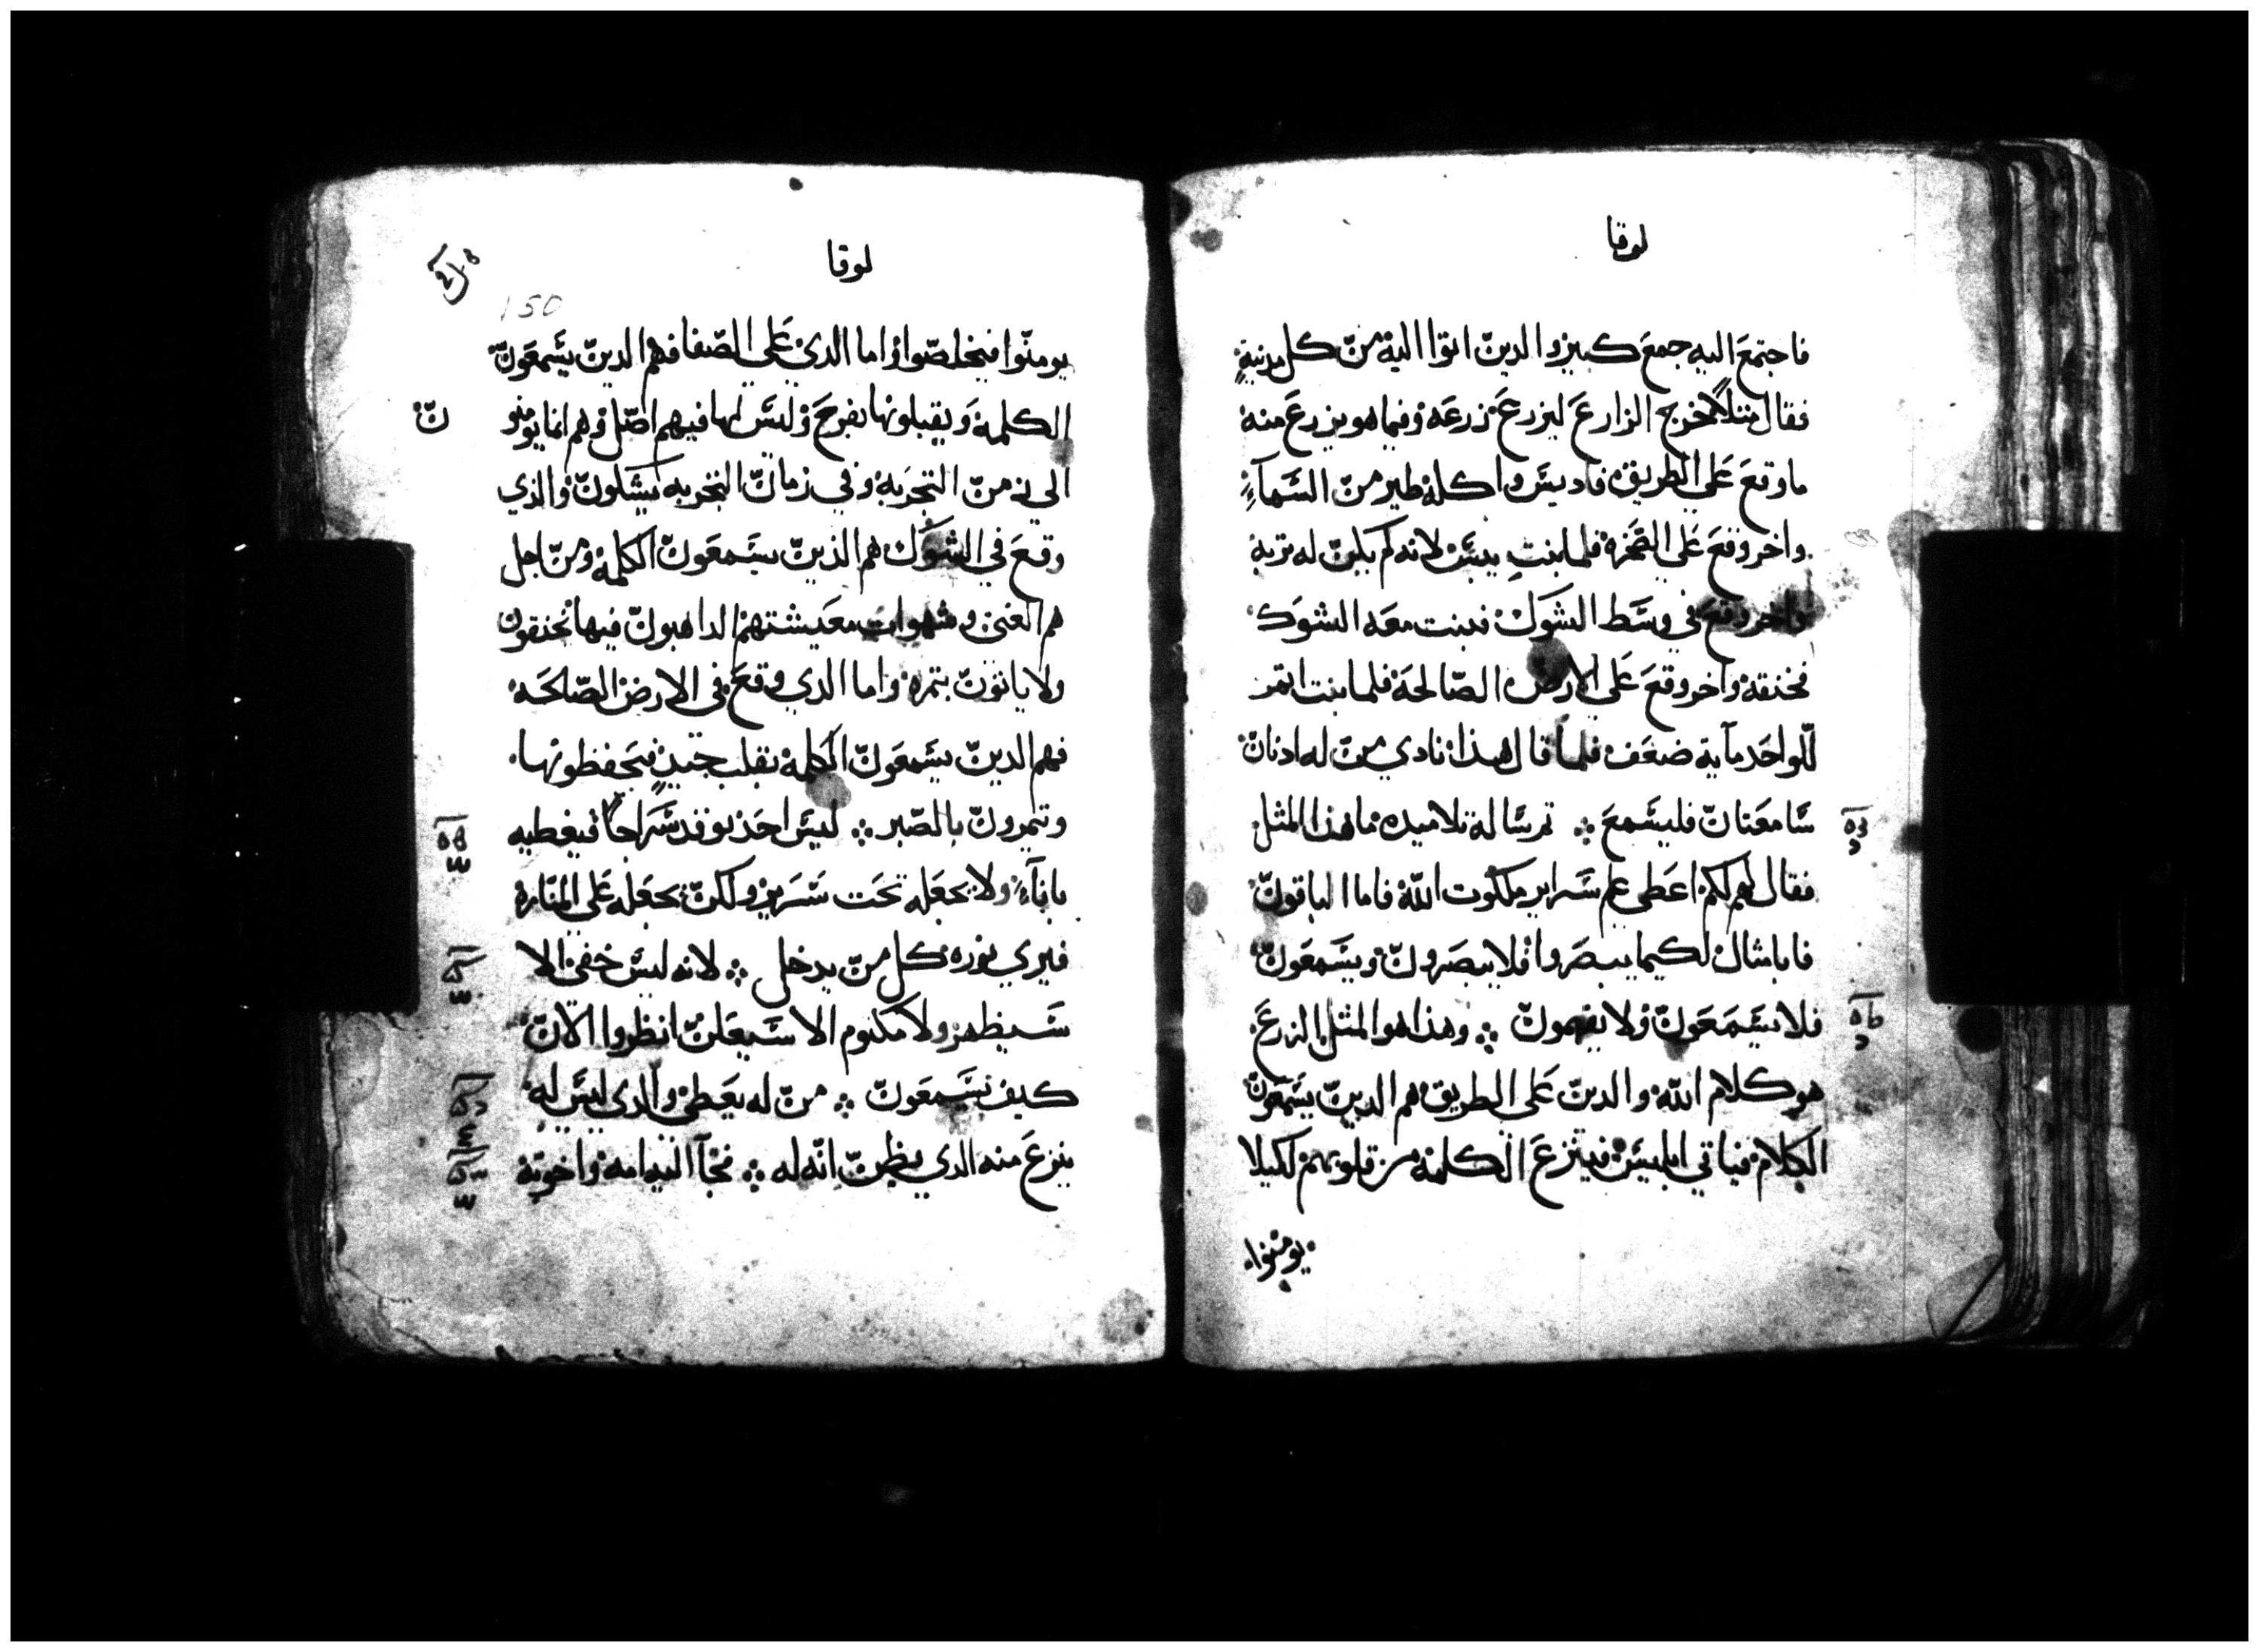 لوقا
فاجتمعَ اليه جمعَ كبير والدينّ اتوا اليه منّ كل مدينةٍ
فقال مثلاً خرج الزارعَ ليزرعَ زرعَه وفيما هو يزرعَ منه
ما وقعَ عَلي الطريق فاديسَ واكله طير منّ السَّمآءِ
واخر وقعَ عَلي الصَّخره فلما نبتِ يبسَ لانه لم يكنّ له تربة
واخر وقعَ في وسَّط الشوَك فنبت معَه الشوَك
فخنقه واخر وقعَ عَلي الارض الصّالحَة فلما نبت اتمر
للّواحَد مآية ضعَف فلما قال هذا نادي منّ له ادنانّ
سَّامعَتانّ فليسَّمعَ ⁘ تم سَّاله تلاميده ما هذا المثل
فقال لهم لكم اعَطي علم سَّراير ملكوت اللّه فاما الباقونّ
فبامثال لكيما يبصَروا فلا يبصَرونّ ويسَّمعَونّ
فلا يسَّمَعَونّ ولا يفهمونّ ⁘ وهذا هو المثل الزرعَ
هو كلام اللّه والدينّ عَلي الطريق هم الدينّ يسَّمعَونّ
الكلام فياتي ابليسَ فينزعَ الكلمه من قلوبهم لكيلا
يومنوا
لوقا
150
يومنّوا فيخلصّوا واما الدي عَلي الصّفا فهم الدينّ يسَّمعَونّ
الكلمة وَيقبلونها بفرحَ وليسَ لها فيهم اصّل وهم انما يومنو
نّ
الي زمنّ التجربَة وفي زمانّ التجربه يشكونّ والذي
وقعَ في الشوَك هم الذينّ يسَّمعَونّ الكلمة ومنّ اجل
هم الغني وشهوات معَيشتهم الداهبونّ فيها يختنقون
ولا ياتونّ بتمره واما الدي وقعَ في الارض الصّالحَه
فهم الدينّ يسَّمعَونّ الكلمه بقلب جيدٍ فيحَفظونها
وتتمرونّ بالصّبر ⁘ ليسَ احَد يوقد سَّراجاً فيغطيه
باناءٍ ولا يجعَله تحَت سَّرير ولكنّ يجعَله عَلي المنّاره
فيري نوره كل منّ يدخل ⁘ لانه ليسَ خفي الا
سَّيظهر ولا مكتوم الا سَّيعَلنّ انظروا الآنّ
كيف تسَّمعَونّ ⁘ منّ له يعَطي والدي ليسَ له
ينزعَ منه الدي يظنّ انّه له ⁘ فجآ اليه امه واخوته